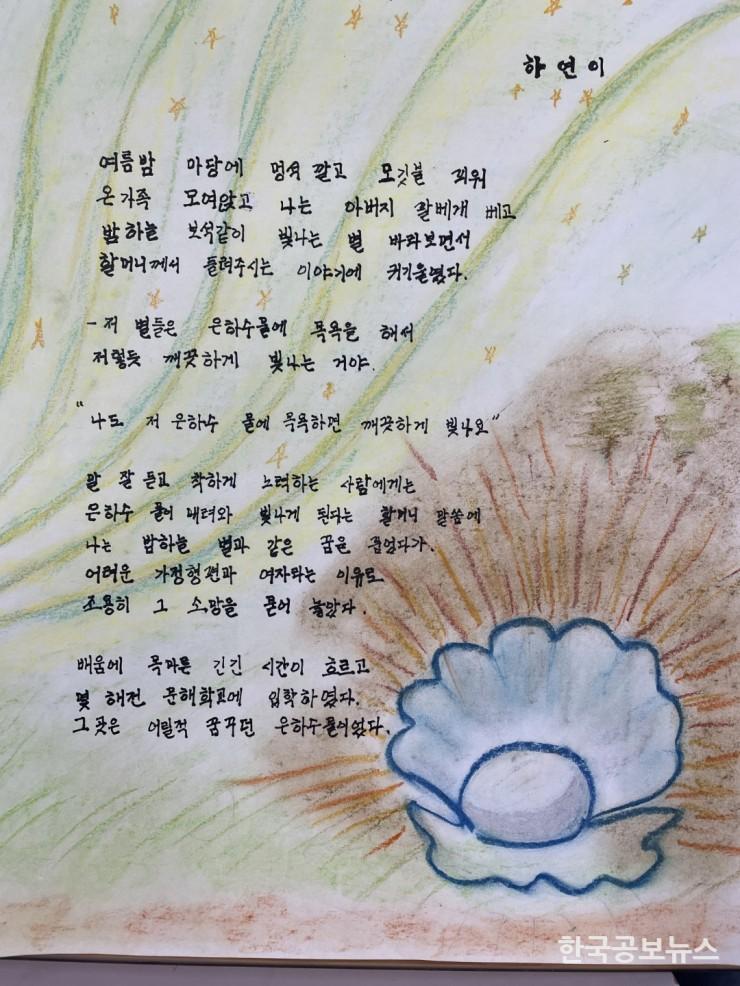 하연이
여름밤 마당에 멍석 깔고 모깃불 피워
온가족 모여앉고 나는 아버지 팔베개 베고
밤하늘 보석같이 빛나는 별 바라보면서
할머니께서 들려주시는 이야기에 귀기울였다.
- 저 별들은 은하수물에 목욕을 해서
저렇듯 깨끗하게 빛나는 거야.
"나도 저 은하수 물에 목욕하면 깨끗하게 빛나요"
말 잘 듣고 착하게 노력하는 사람에게는
은하수 물이 내려와 빛나게 된다는 할머니 말씀에
나는 밤하늘 별과 같은 꿈을 꾸었다가.
어려운 가정형편과 여자라는 이유로
조용히 그 소망을 묻어 놓았다.
배움에 목마른 긴긴 시간이 흐르고
몇 해전 문해학교에 입학하였다.
그곳은 어릴적 꿈꾸던 은하수물이었다.
한국공보뉴스